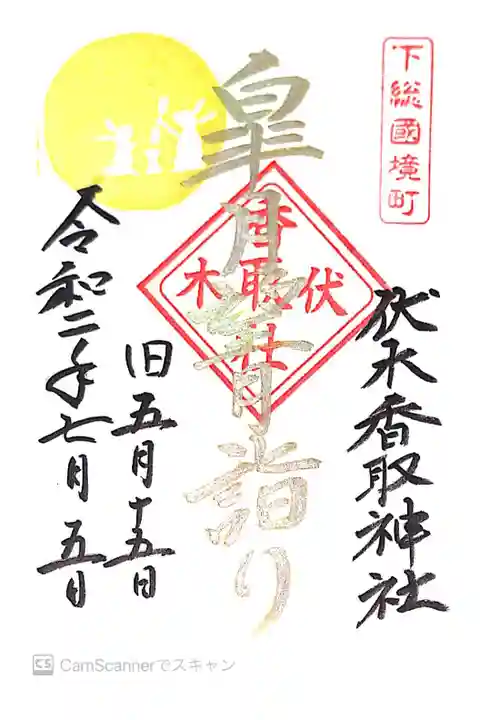 下総國境町
伏木香取神社
伏木
香取社
皐月望月詣り
旧五月十五日
令和二年七月五日
CS CamScannerでスキャン